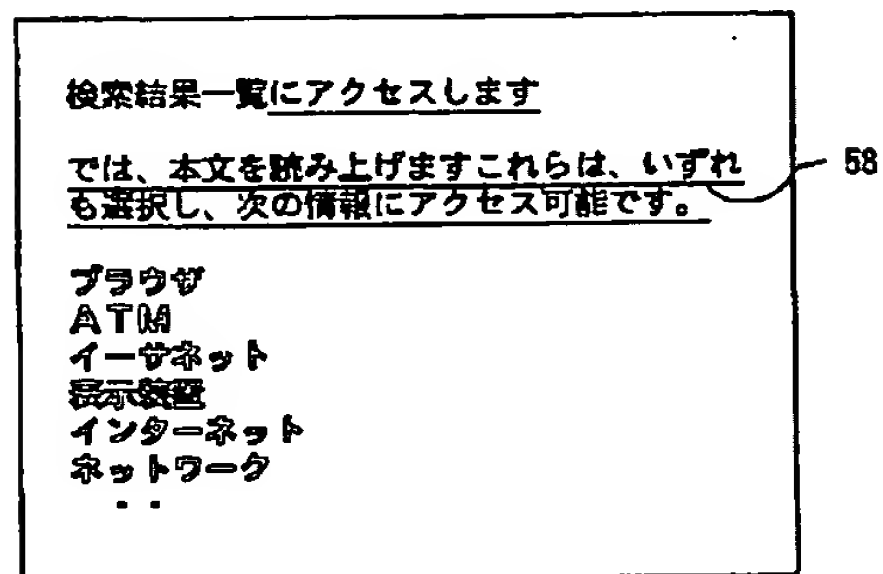 検索結果一覧にアクセスします
では、本文を読み上げますこれらは、いずれ
も選択し、次の情報にアクセス可能です。
58
ブラウザ
ATM
イーサネット
表示装置
インターネット
ネットワーク
・・